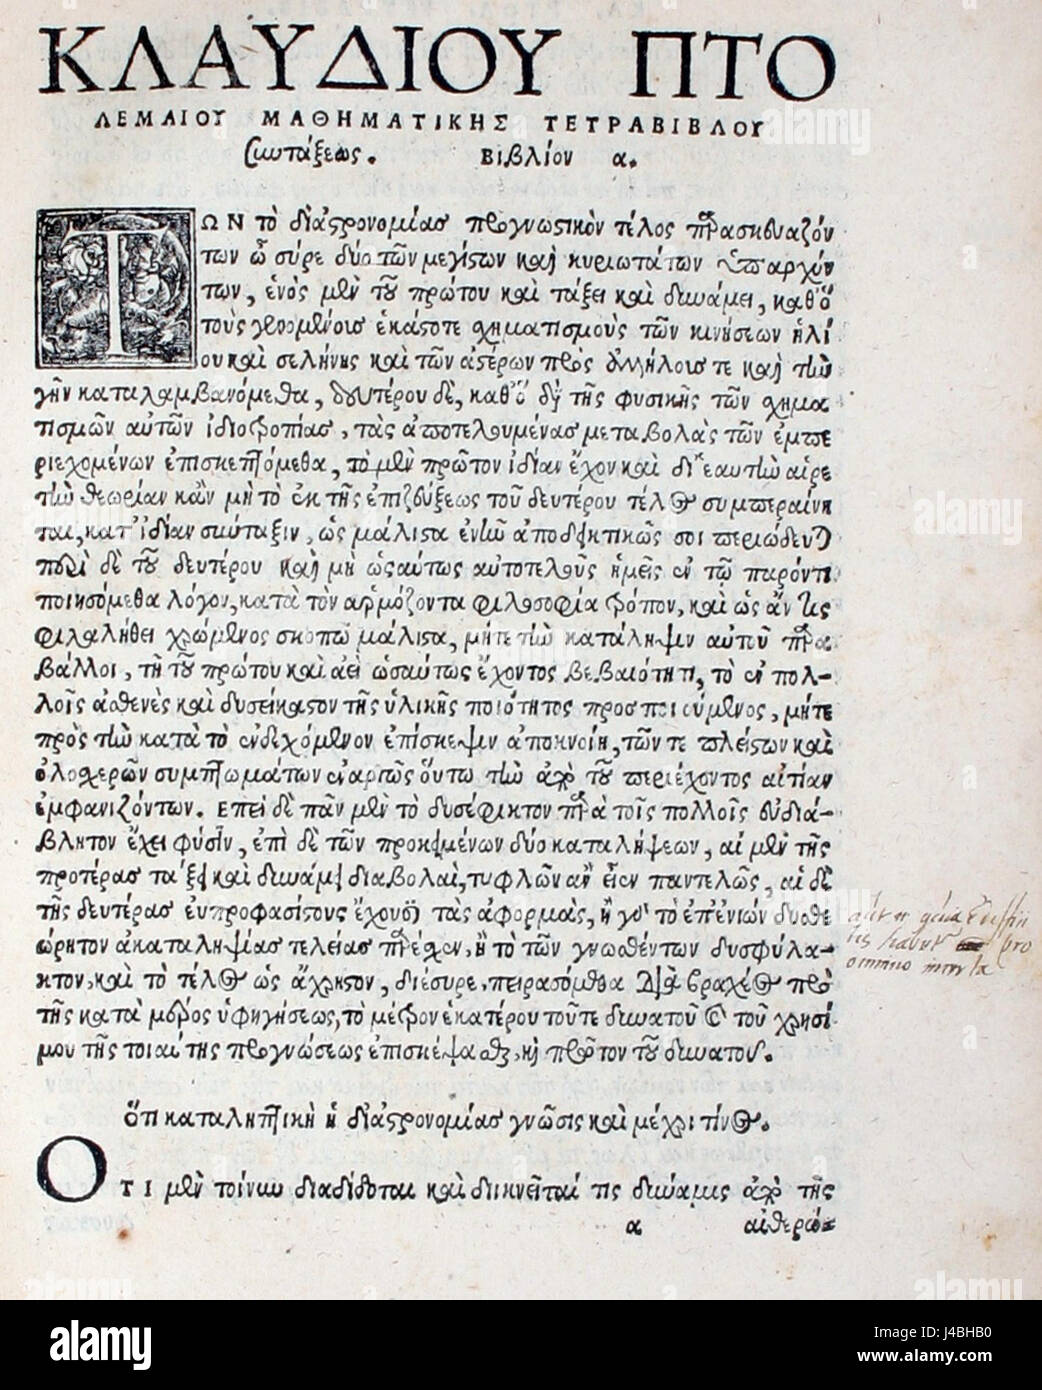 ΚΛΑΥΔΙΟΥ ΠΤΟ
ΛΕΜΑΙΟΥ ΜΑΘΗΜΑΤΙΚΗΣ ΤΕΤΡΑΒΙΒΛΟΥ
Συντάξεως. Βιβλίον α.
ΤΩΝ τὸ δι᾽ ἀστρονομίας προγνωστικὸν τέλος παρασκευαζόν
των ὦ σύρε δύο τῶν μεγίστων καὶ κυριωτάτων ὑπαρχόν
των, ἑνὸς μὲν τοῦ πρώτου καὶ τάξει καὶ δυνάμει, καθ᾽ ὃ
τοὺς γινομένοις ἑκάστοτε σχηματισμοὺς τῶν κινήσεων ἡλί
ου καὶ σελήνης καὶ τῶν ἀστέρων πρὸς ἀλλήλους τε καὶ τὴν
γῆν καταλαμβανόμεθα, δευτέρου δὲ, καθ᾽ ὃ δὴ τῆς φυσικῆς τῶν σχημα
τισμῶν αὐτῶν ἰδιοτροπίας, τὰς ἀποτελουμένας μεταβολὰς τῶν ἐμπε
ριεχομένων ἐπισκεπτόμεθα, τὸ μὲν πρῶτον ἰδίαν ἔχον καὶ δι᾽ ἑαυτὴν αἱρε
τὴν θεωρίαν κἂν μὴ τὸ ἐκ τῆς ἐπιζεύξεως τοῦ δευτέρου τέλος συμπεραίνη
ται, κατ᾽ ἰδίαν σύνταξιν, ὡς μάλιστα ἐνῆν ἀποδεικτικῶς σοι περιώδευται
περὶ δὲ τοῦ δευτέρου καὶ μὴ ὡσαύτως αὐτοτελοῦς ἡμεῖς ἐν τῷ παρόντι
ποιησόμεθα λόγον, κατὰ τὸν ἁρμόζοντα φιλοσοφία τρόπον, καὶ ὡς ἄν τις
φιλαλήθει χρώμενος σκοπῷ μάλιστα, μήτε τὴν κατάληψιν αὐτοῦ παρα
βάλλοι, τῇ τοῦ πρώτου καὶ ἀεὶ ὡσαύτως ἔχοντος βεβαιότητι, τὸ ἐν πολ-
λοῖς ἀσθενὲς καὶ δυσείκαστον τῆς ὑλικῆς ποιότητος προσποιούμενος, μήτε
πρὸς τὴν κατὰ τὸ ἐνδεχόμενον ἐπίσκεψιν ἀποκνοίη, τῶν τε πλείστων καὶ
ὁλοσχερῶν συμπτωμάτων ἐναργῶς οὕτω τὴν ἀπὸ τοῦ περιέχοντος αἰτίαν
ἐμφανιζόντων. Επεὶ δὲ πᾶν μὲν τὸ δυσέφικτον παρὰ τοῖς πολλοῖς εὐδιά-
βλητον ἔχει φύσιν, ἐπὶ δὲ τῶν προκειμένων δύο καταλήψεων, αἱ μὲν τῆς
προτέρας τάξει καὶ δυνάμει διαβολαὶ, τυφλῶν ἂν εἶεν παντελῶς, αἱ δὲ
τῆς δευτέρας εὐπροφασίστους ἔχουσι τὰς ἀφορμὰς, ἢ γὰρ τὸ ἐπ᾽ ἐνίων δυσθε
ώρητον ἀκαταληψίας τελείας παρέσχεν, ἢ τὸ τῶν γνωσθέντων δυσφύλα-
κτον, καὶ τὸ τέλος ὡς ἄχρηστον, διέσυρε, πειρασόμεθα διὰ βραχέος πρὸ
τῆς κατὰ μέρος ὑφηγήσεως, τὸ μέτρον ἑκατέρου τοῦ τε δυνατοῦ καὶ τοῦ χρησί
μου τῆς τοιαύτης προγνώσεως ἐπισκέψασθαι, καὶ πρῶτον τοῦ δυνατοῦ.
Ὅτι καταληπτικὴ ἡ δι᾽ ἀστρονομίας γνῶσις καὶ μέχρι τίνος.
ΟΤΙ μὲν τοίνυν διαδίδοται καὶ διικνεῖται τις δύναμις ἀπὸ τῆς
α αἰθερώ-
omnino
alamy
J4BHB0
www.alamy.com